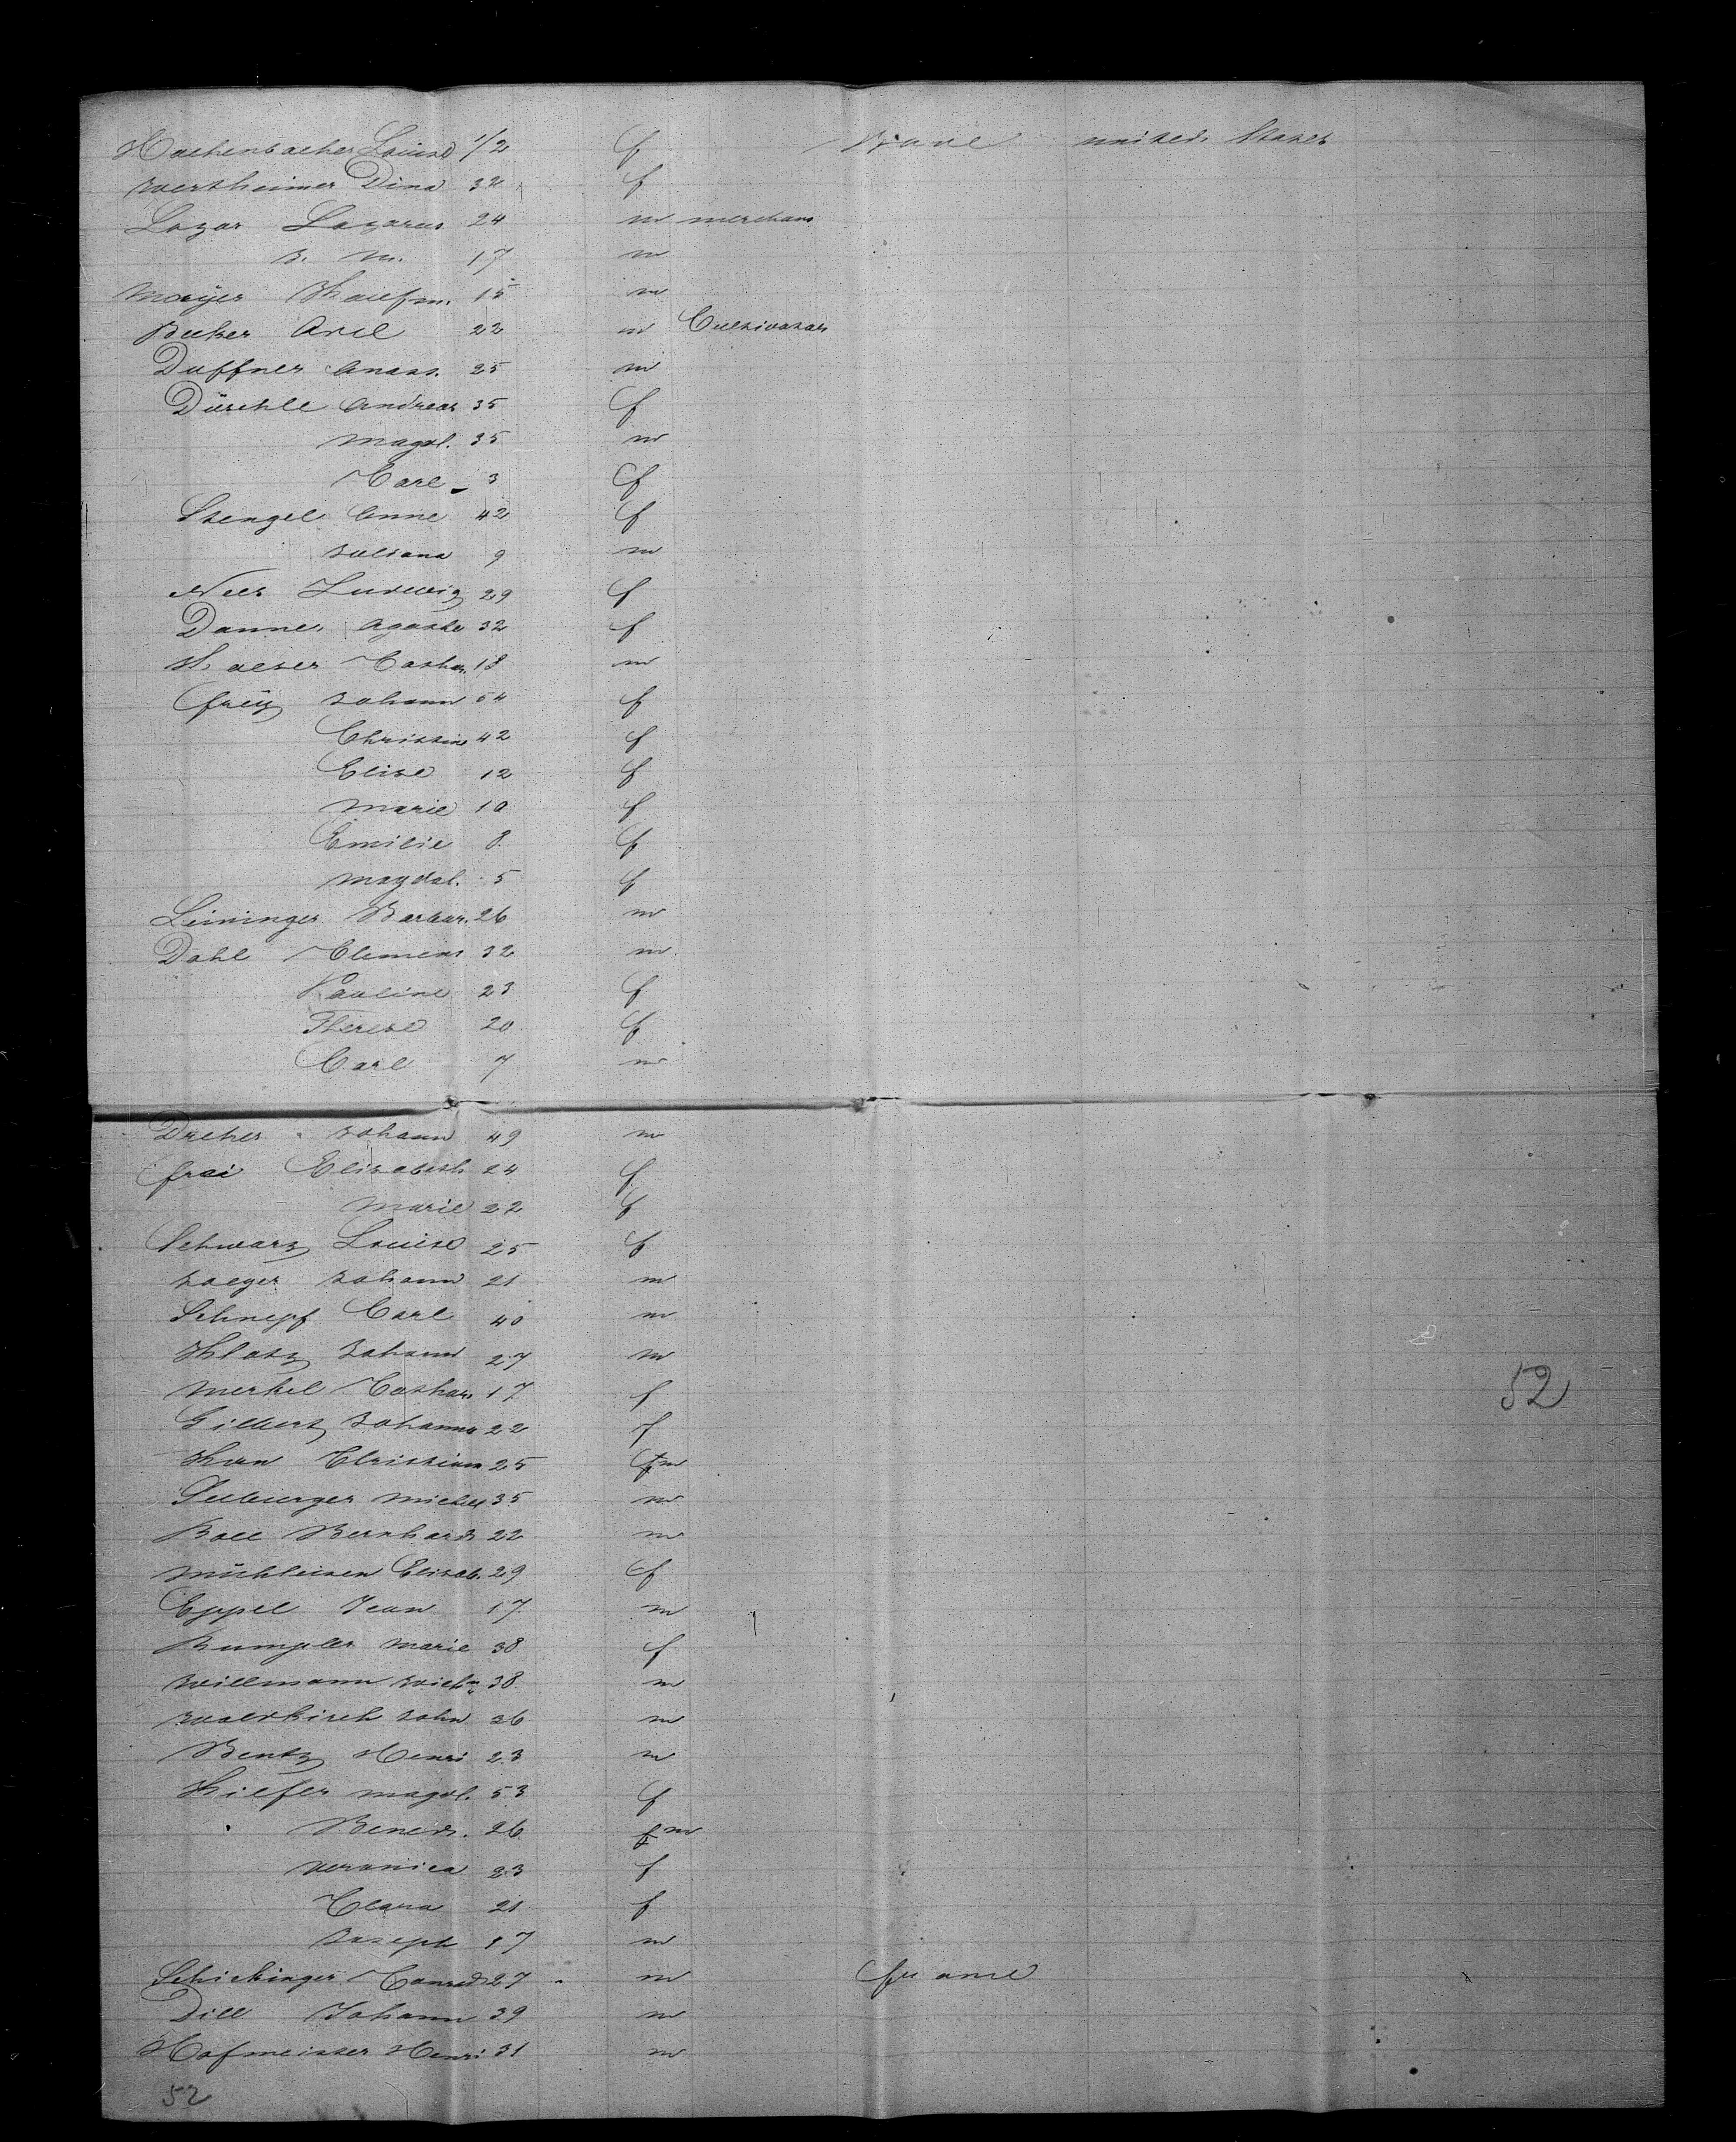 Hachenbacher Louise 1/2 f Bade united States
Wertheimer Dina 32 f
Lazar Lazarus 24 m merchant
J. M. 17 m
Mayer Kaufm. 15 m
Becker Carl 22 m Cultivator
Duffner Anast. 25 m
Düschle Andreas 35 f
Magd. 35 m
Carl 3 f
Stengel Anne 42 f
Juliana 9 m
Ludwig 29 f
Danner Agathe 32 f
Kaeser Cathar. 18 m
Frey Johann 54 f
Christine 42 f
Elise 12 f
Marie 10 f
Emilie 8 f
Magdal. 5 f
Leininger Barbar. 26 m
Dahl Clemens 32 m
Pauline 23 f
Therese 20 f
Carl 7 m
Dreher Johann 49 m
Frei Elisabeth 24 f
Marie 22 f
Schwarz Louise 25 f
Jaeger Johann 21 m
Schnepf Carl 40 m
Klotz Johann 27 m
Merkel Cathar 17 f
Gilbert Johanna 22 f
Christian 25 m
Seeburger Michel 35 m
Boll Bernhard 22 m
Mühleisen Elisab. 29 f
Eppel Jean 17 m
Rumpler Marie 38 f
Willmann Wilhm 38 m
Waldkirch John 36 m
Bentz Henri 23 m
Kiefer Magd. 53 f
Bened. 26 m
Veronica 23 f
Clara 21 f
Joseph 17 m
Schickinger Conrad 27 m france
Dill Johann 39 m
Hofmeister Henri 31 m
52
52